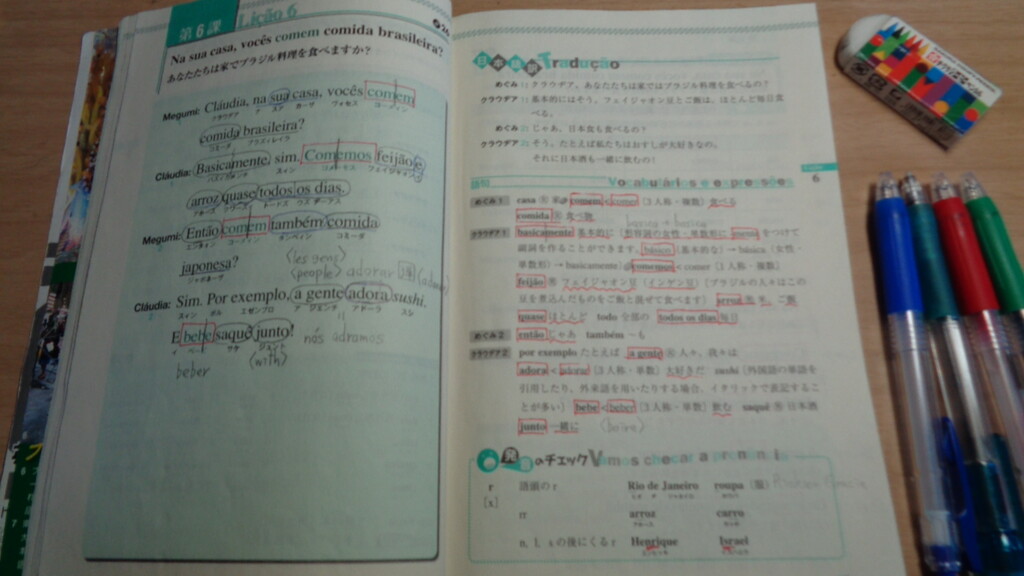 第6課 Lição 6
Na sua casa, vocês comem comida brasileira?
あなたたちは家でブラジル料理を食べますか?
Megumi: Cláudia, na sua casa, vocês comem
comida brasileira?
Cláudia: Basicamente, sim. Comemos feijão e
arroz quase todos os dias.
Megumi: Então comem também comida
japonesa?
(les gens)
(people) adorar
Cláudia: Sim. Por exemplo, a gente adora sushi.
E bebe saquê junto! nós adramos
(with)
beber
日本語訳 Tradução
めぐみ1: クラウヂア、あなたたちは家ではブラジル料理を食べるの?
クラウヂア1: 基本的にはそう。フェイジャオン豆とご飯は、ほとんど毎日食
べる。
めぐみ2: じゃあ、日本食も食べるの?
クラウヂア2: そう。たとえば私たちはおすしが大好きなの。
それに日本酒も一緒に飲むの!
語句 Vocabulários e expressões
6
めぐみ1 casa 家 comem < comer〔3人称・複数〕
comida 食べ物
クラウヂア1 basicamente 基本的に〔形容詞の女性・単数形に mente をつけて
副詞を作ることができます。básico（基本的な）→ básica（女性・
単数形）→ basicamente〕 comemos < comer〔1人称・複数〕
feijão フェイジャオン豆（インゲン豆）〔ブラジルの人々はこの
豆を煮込んだものをご飯と混ぜて食べます〕 arroz 米、ご飯
quase ほとんど todo 全部の todos os dias 毎日
めぐみ2 então じゃあ também ~も
クラウヂア2 por exemplo たとえば a gente 人々、我々は
adora < adorar〔3人称・単数〕大好きだ sushi〔外国語の単語を
引用したり、外来語を用いたりする場合、イタリックで表記するこ
とが多い〕 bebe < beber〔3人称・単数〕飲む saquê 日本酒
junto 一緒に (boire)
発音のチェック Vamos checar a pronúncia
r 語頭の r Rio de Janeiro roupa（服）
[x]
rr arroz carro
n, l, s の後にくる r Henrique Israel